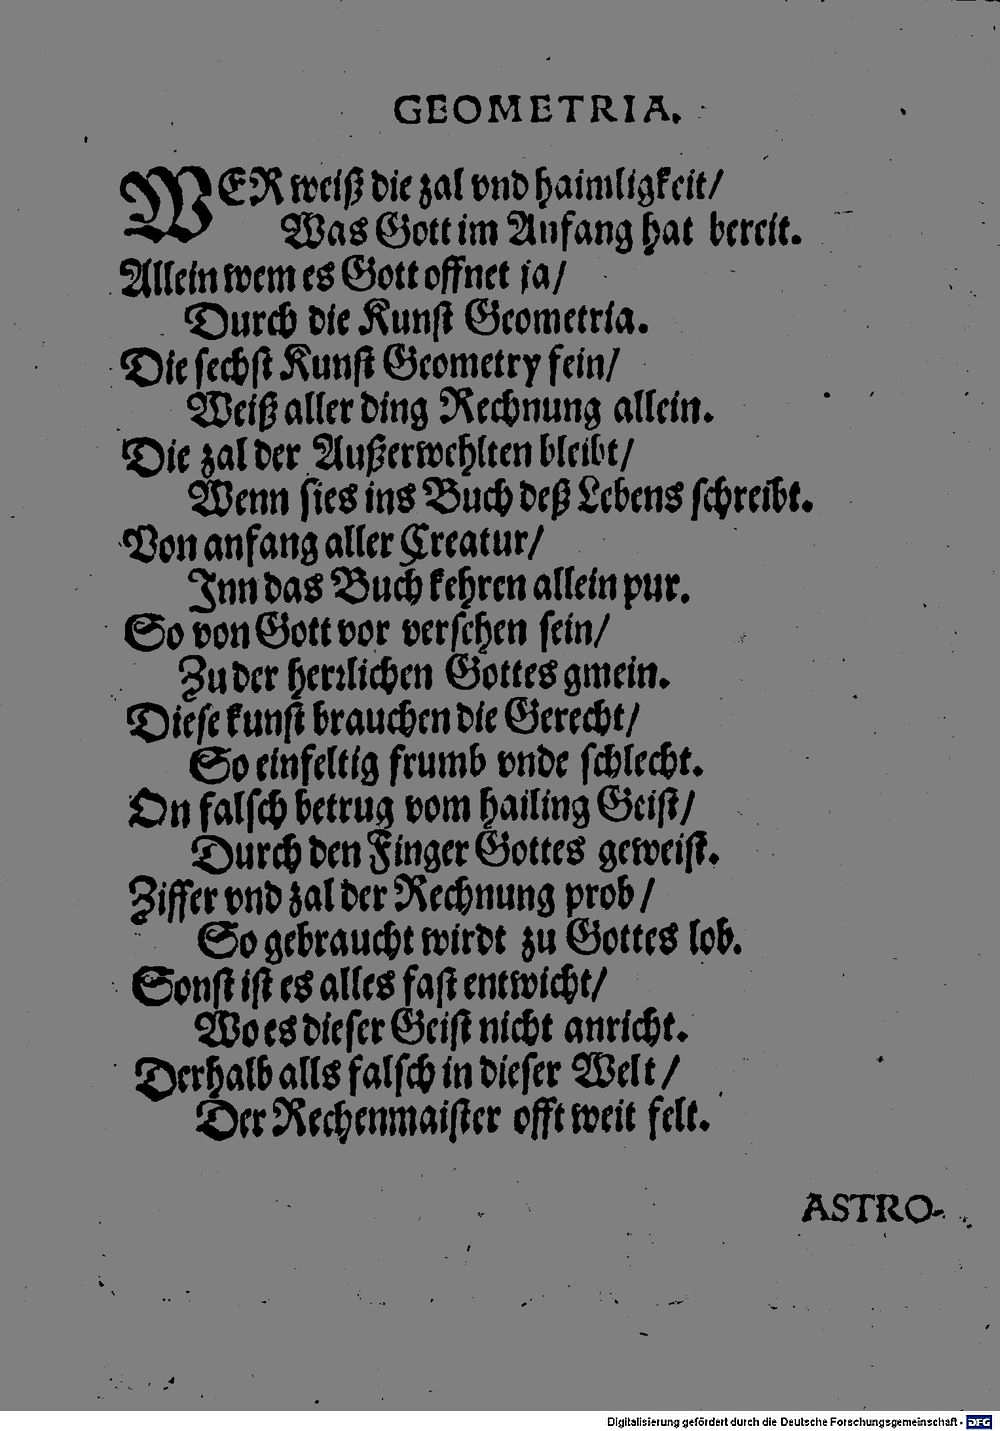 GEOMETRIA.
WER weiß die zal vnd haimligkeit/
Was Gott im Anfang hat bereit.
Allein wem es Gott offnet ja/
Durch die Kunst Geometria.
Die sechst Kunst Geometry fein/
Weiß aller ding Rechnung allein.
Die zal der Außerwehlten bleibt/
Wenn sies ins Buch deß Lebens schreibt.
Von anfang aller Creatur/
Inn das Buch kehren allein pur.
So von Gott vor versehen sein/
Zu der herrlichen Gottes gmein.
Diese kunst brauchen die Gerecht/
So einfeltig frumb vnde schlecht.
On falsch betrug vom hailing Geist/
Durch den Finger Gottes geweist.
Ziffer vnd zal der Rechnung prob/
So gebraucht wirdt zu Gottes lob.
Sonst ist es alles fast entwicht/
Wo es dieser Geist nicht anricht.
Derhalb alls falsch in dieser Welt/
Der Rechenmaister offt weit felt.
ASTRO-
Digitalisierung gefördert durch die Deutsche Forschungsgemeinschaft - DFG